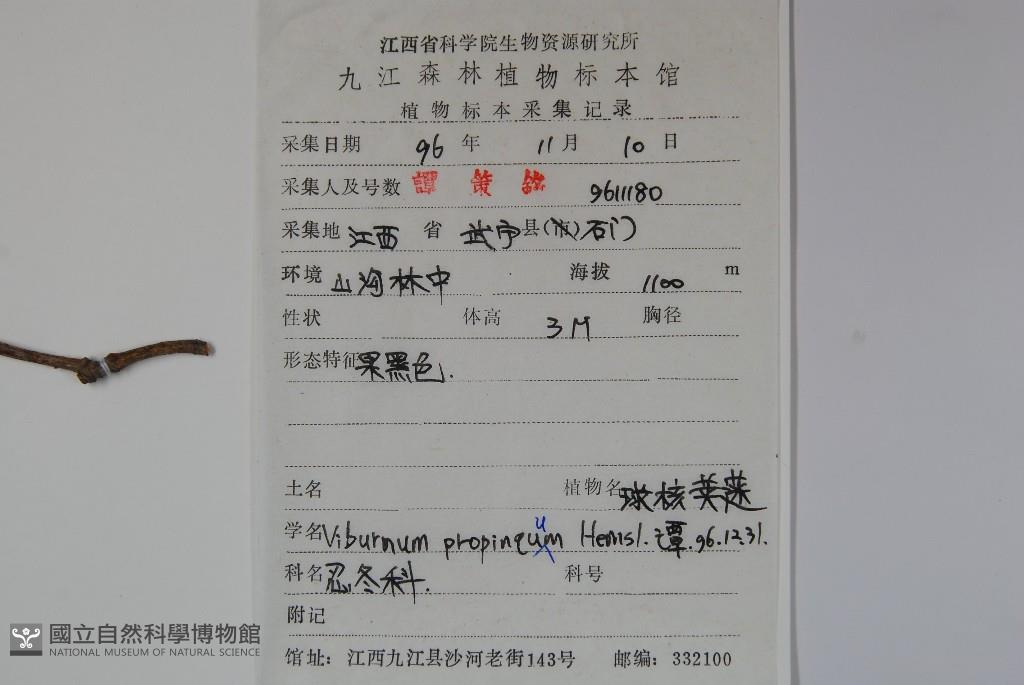 江西省科学院生物资源研究所
九江森林植物标本馆
植物标本采集记录
采集日期 96 年 11 月 10 日
采集人及号数 譚策铭 9611180
采集地 江西 省 武宁 县(市) 石门
环境 山沟林中 海拔 1100 m
性状 体高 3M 胸径
形态特征 果黑色.
土名 植物名 球核荚蒾
学名 Viburnum propinquum Hemsl. 谭. 96.12.31.
科名 忍冬科. 科号
附记
馆址: 江西九江县沙河老街143号 邮编: 332100
國立自然科學博物館
NATIONAL MUSEUM OF NATURAL SCIENCE